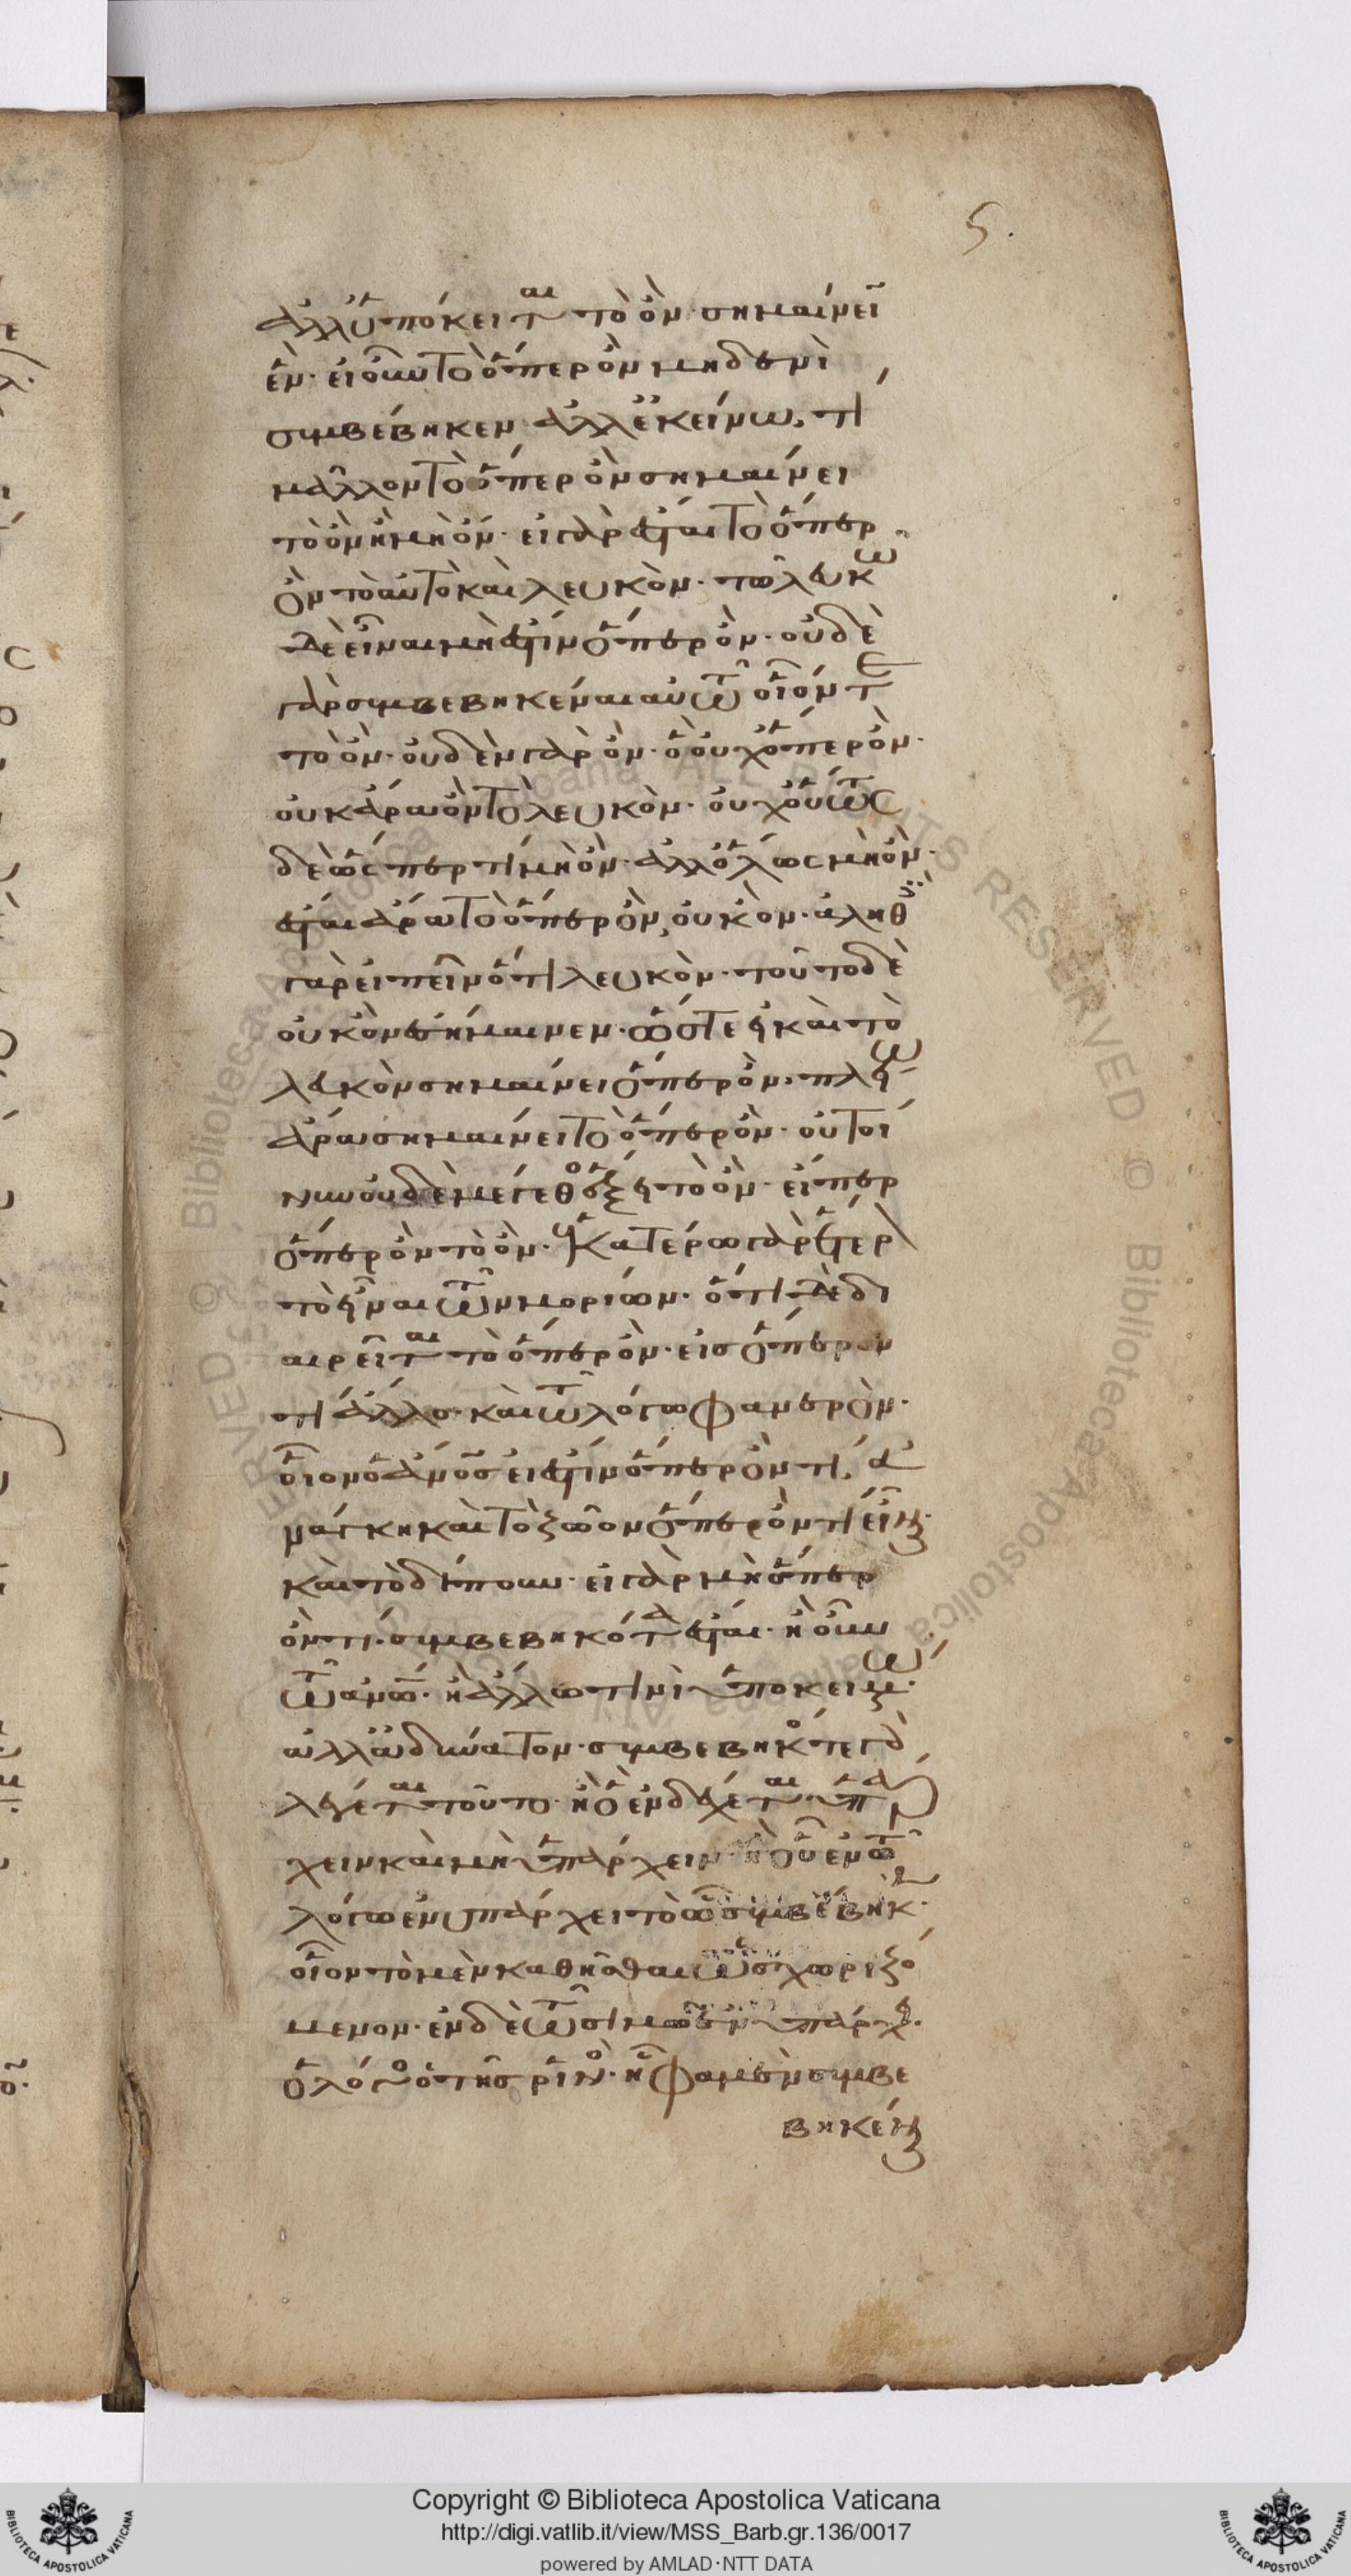 5.
ἀλλ' ὑπόκειται τὸ ὂν σημαίνειν
ἕν· εἰ οὖν τὸ ὅπερ ὂν μηδενὶ
συμβέβηκεν ἀλλ' ἐκείνω, τί
μᾶλλον τὸ ὅπερ ὂν σημαίνει
τὸ ὂν ἢ μὴ ὄν· εἰ γὰρ ἔσται τὸ ὅπερ
ὂν τὸ αὐτὸ καὶ λευκὸν· τῶ λευκῶ
δὲ εἶναι μὴ ἔστιν ὅπερ ὄν· οὐδὲ
γὰρ συμβεβηκέναι αὐτῶ οἷόν τε
τὸ ὄν· οὐδὲν γὰρ ὂν· ὃ οὐχ ὅπερ ὄν·
οὐκ ἄρα ὂν τὸ λευκὸν· οὐχ οὕτως
δὲ ὥσπερ τὶ μὴ ὄν· ἀλλ' ὅλως μὴ ὄν·
ἔσται ἄρα τὸ ὅπερ ὂν, οὐκ ὄν· ἀληθὲς
γὰρ εἰπεῖν ὅτι λευκὸν· τοῦτο δὲ
οὐκ ὂν ἐσήμαινεν· ὥστε εἰ καὶ τὸ
λευκὸν σημαίνει ὅπερ ὄν· πλείω
ἄρα σημαίνει τὸ ὅπερ ὄν· οὐ τοί
νυν οὐδὲ μέγεθος ἕξει τὸ ὄν· εἴπερ
ὅπερ ὂν τὸ ὄν· ἑκατέρω γὰρ ἕτερον
τὸ εἶναι τῶν μορίων· ὅτι δὲ δι
αιρεῖται τὸ ὅπερ ὂν· εἰς ὅπερ ὄν
τι ἄλλο· καὶ τῶ λόγω φανερὸν·
οἷον ὁ ἄνος εἰ ἔστιν ὅπερ ὄν τι, ἀ
νάγκη καὶ τὸ ζῶον ὅπερ ὄν τι εἶναι·
καὶ τὸ δίπουν· εἰ γὰρ μὴ ὅπερ
ὄν τι. συμβεβηκότα ἔσται· ἢ οὖν
τῶ ἀνω· ἢ ἄλλω τινὶ ὑποκειμένω·
ἀλλ' ἀδύνατον· συμβεβηκός τε γὰρ
λέγεται τοῦτο· ἢ ὃ ἐνδέχεται ὑπάρ
χειν καὶ μὴ ὑπάρχειν· ἢ οὗ ἐν τῶ
λόγω ἐνυπάρχει τὸ ὧ συμβέβηκεν·
οἷον τὸ μὲν καθῆσθαι ὡς χωριζό
μενον· ἐν δὲ τῶ σιμῶ ὑπάρχει
ὁ λόγος ὁ τῆς ρινὸς· ἧ φαμὲν συμβε
βηκέναι
Copyright © Biblioteca Apostolica Vaticana
http://digi.vatlib.it/view/MSS_Barb.gr.136/0017
powered by AMLAD·NTT DATA